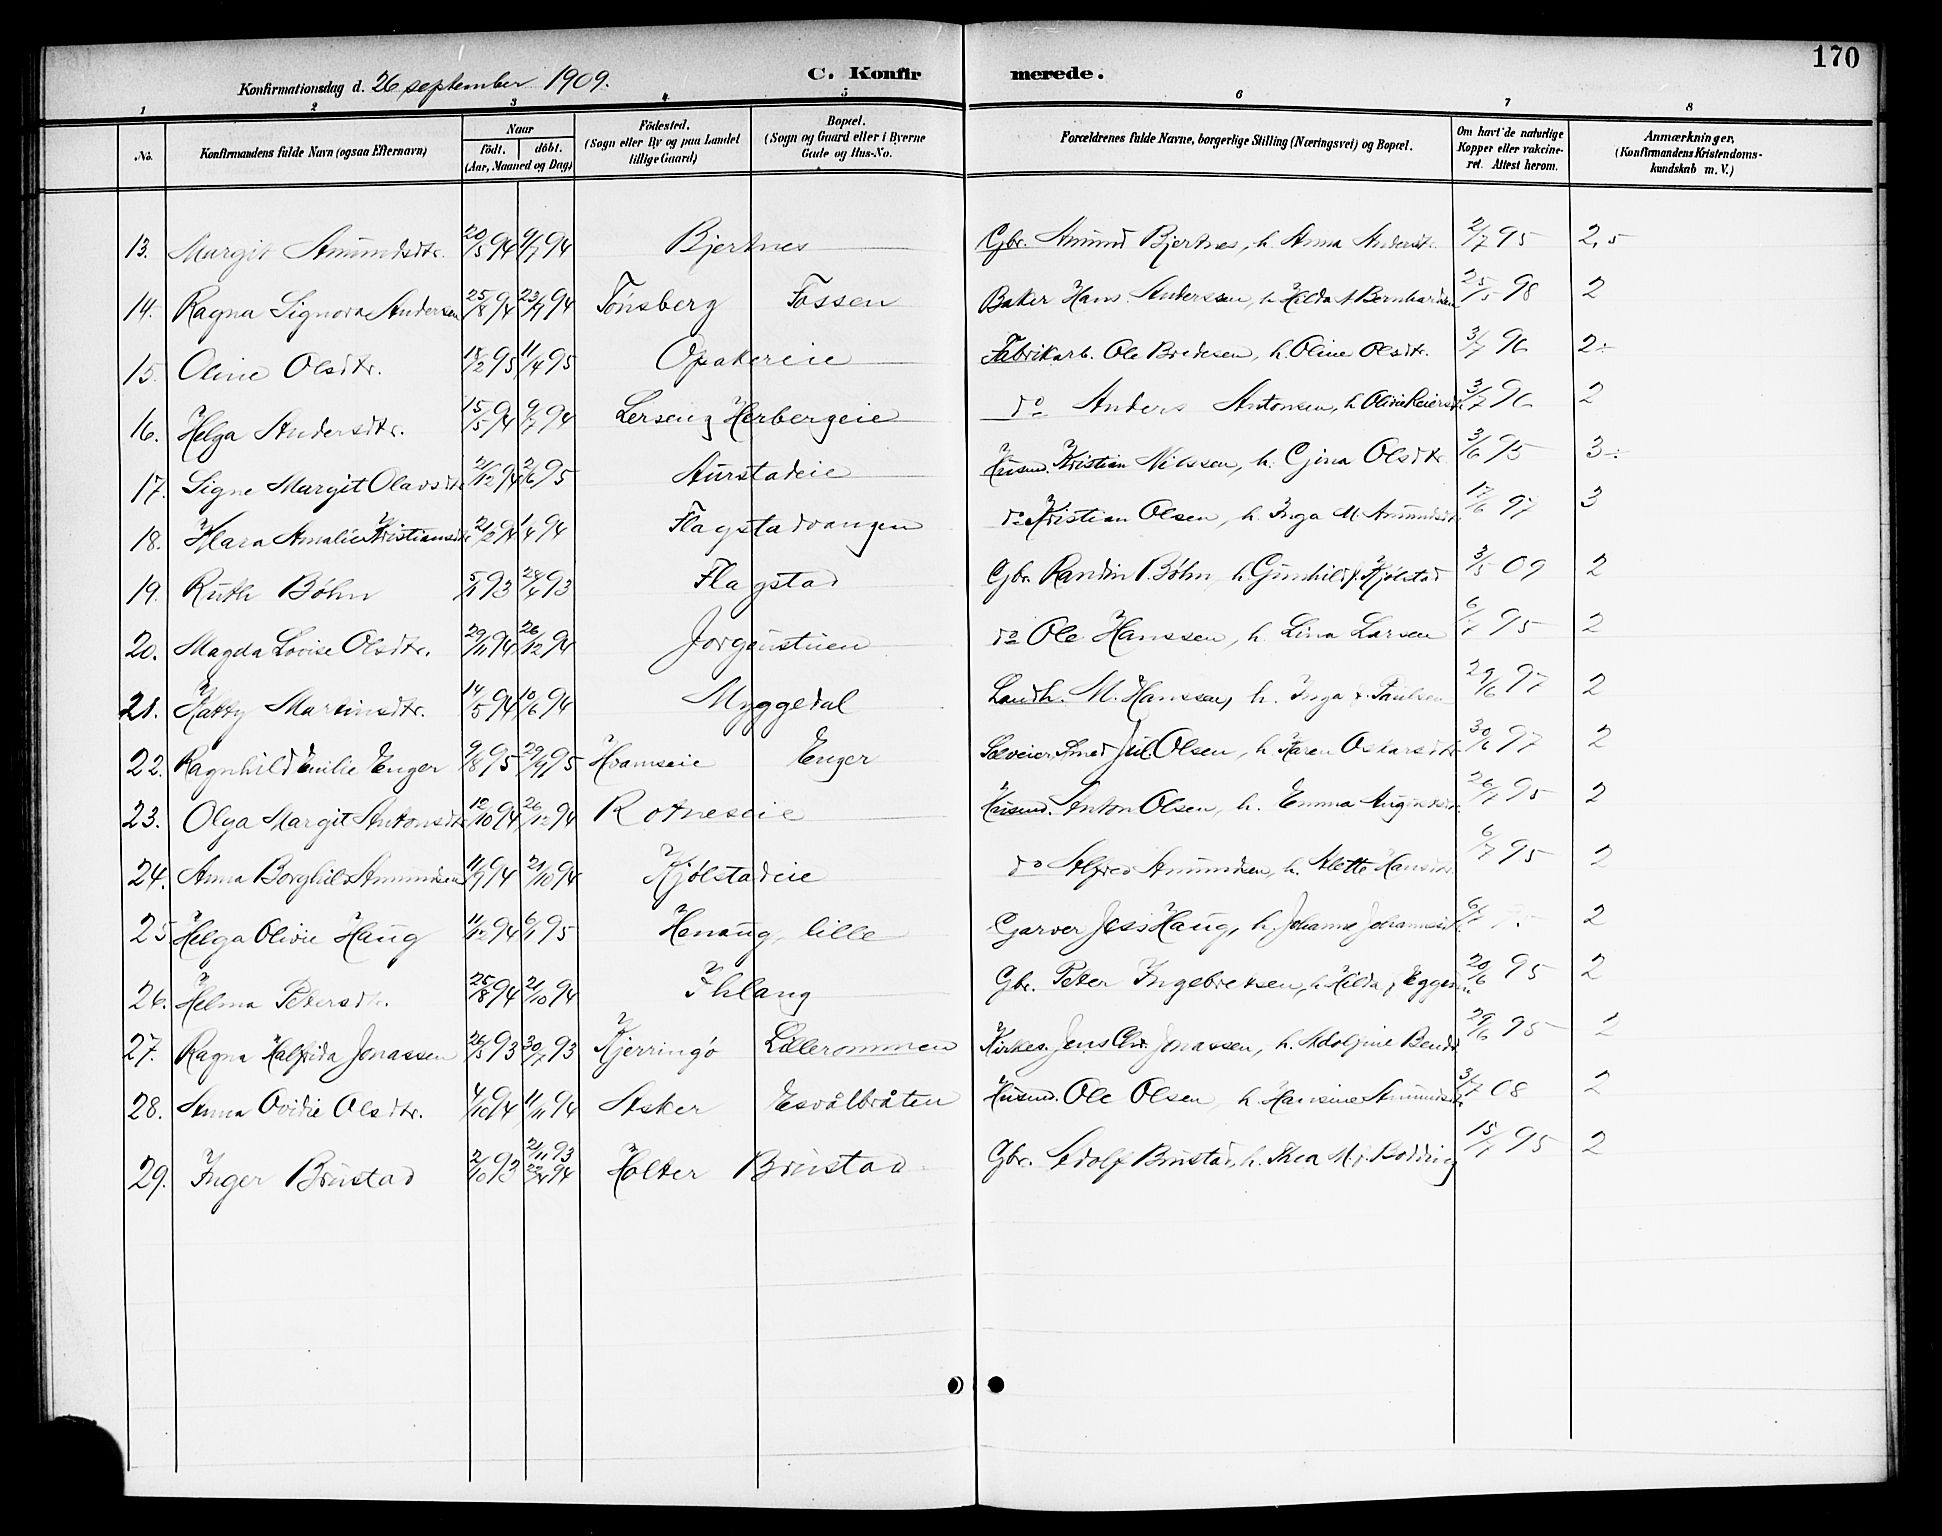 170
Konfirmationsdag d. 26 september 1909.
C. Konfirmerede.
1 2 3 4 5 6 7 8
No. Konfirmandens fulde Navn (ogsaa Efternavn) Naar født. døbt. (Aar, Maaned og Dag) Fødested. (Sogn eller By og paa Landet tillige Gaard) Bopæl. (Sogn og Gaard eller i Byerne Gade og Hus-No. Forældrenes fulde Navne, borgerlige Stilling (Næringsvei) og Bopæl. Om havt de naturlige Kopper eller vakcineret. Attest herom. Anmærkninger. (Konfirmandens Kristendomskundskab m. V.)
13. Margit Amundsdtr. 20/5 94 9/7 94 Bjertnes Gbr. Amund Bjertnes, h. Anna Andersdt. 2/7 95 2,5
14. Ragna Signora Andersen 25/8 94 23/9 94 Tønsberg Fossen Baker Hans Anderssen, h. Hilda A Bernhardsen 25/5 98 2
15. Oline Olsdtr. 18/2 95 11/4 95 Opakereie Fabrikarb. Ole Bredesen, h. Oline Olsdtr. 3/7 96 2÷
16. Helga Andersdtr. 15/5 94 9/7 94 Lerseng Herbergeie do Anders Antonsen, h. Olivie Reiersdt. 3/7 96 2
17. Signe Margit Olavsdtr 21/12 94 2/6 95 Aurstadeie Husmd. Kristian Nilssen, h. Gina Olsdtr 3/6 95 3÷
18. Klara Amalie Kristiansdtr 21/2 94 1/4 94 Flagstadvangen do Kristian Olsen, h. Inga M. Amundsdt. 17/6 97 3
19. Ruth Bøhn 93 28/ 93 Flagstad Gbr. Randin P. Bøhn, h. Gunhild f. Kjølstad 3/5 09 2
20. Magda Lovise Olsdtr. 29/11 94 26/12 94 Jorgenstuen do Ole Hanssen, h. Lina Larsen 6/7 95 2
21. Kathy Martinsdtr. 14/5 94 10/6 94 Myggedal Landh. M. Hanssen, h. Inga f. Paulsen 29/6 97 2
22. Ragnhild Emilie Enger 9/8 95 29/9 95 Hvamseie Enger Sæveier Amed Jul. Olsen, h. Karen Oskarsdtr 30/6 97 2
23. Olga Margit Antonsdtr 12/10 94 26/12 94 Rotneseie Husmd. Anton Olsen, h. Emma Augustsdt. 26/7 95 2
24. Anna Borghild Amundsen 11/9 94 21/10 94 Kjølstadeie do Alfred Amundsen, h. Alette Hansdtr. 6/7 95 2
25 Helga Olivie Haug 11/12 94 6/1 95 Henaug, lille Garver Jess Haug, h. Johanne Johannesdt. 6/7 2
26. Helma Petersdtr. 25/8 94 21/10 94 Ihlang Gbr. Peter Ingebretsen, h. Hilda f. Eggum 20/6 95 2
27. Ragna Halfrida Jonassen 26/5 93 30/7 93 Kjerringø Lillerommen Kirkes. Jens Chr. Jonassen, h. Adolfine Bendt 29/6 95 2
28. Anna Ovidie Olsdtr. 4/10 94 11/11 94 Asker Esvålbråten Husmd. Ole Olsen, h. Hansine Amundsdt. 3/7 08 2
29. Inger Brustad 2/10 93 21/11 93 22/4 94 Holter Brustad Gbr. Adolf Brustad, h. Thea M. f. Bodding 15/7 95 2